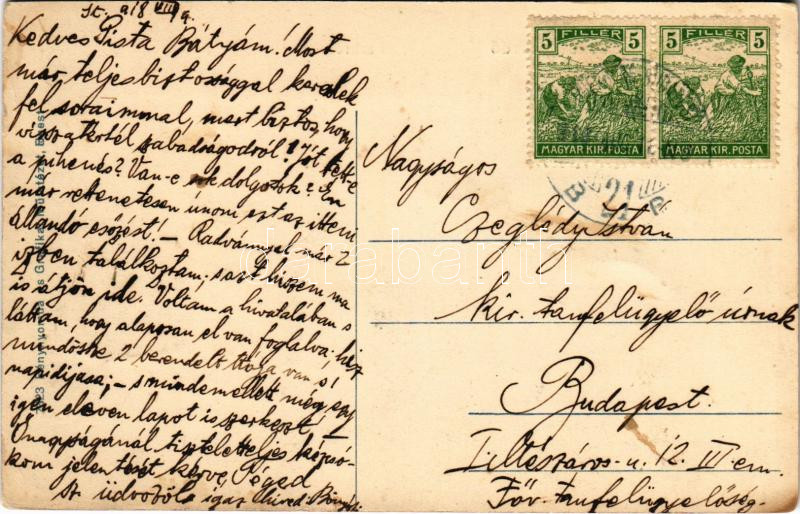 Kedves Pista Bátyám! Most
már teljes biztossággal kereslek
fel soraimmal, mert biztos, hogy
visszatértél szabadságodról! Jót tett-e
a pihenés? Van-e sok dolgotok? Én
már rettenetesen únom ezt az itteni
állandó esőzést! – Radvánnyal már 2
ízben találkoztam; s azt hiszem ma
is átjön ide. Voltam a hivatalában s
láttam, hogy alaposan el van foglalva; hisz
mindössze 2 berendelt
napidíjasa; – s mindemellett még egy
igen eleven lapot is szerkeszt! –
Őnagyságának tiszteletteljes kézcsó-
kom jelentését kérve, Téged
üdvözöl igaz híved
FILLÉR
5 5
MAGYAR KIR. POSTA
FILLÉR
5 5
MAGYAR KIR. POSTA
Nagyságos
Czeglédy István
kir. tanfelügyelő úrnak
Budapest.
12. III. em.
Főv. tanfelügyelőség.
darabanth